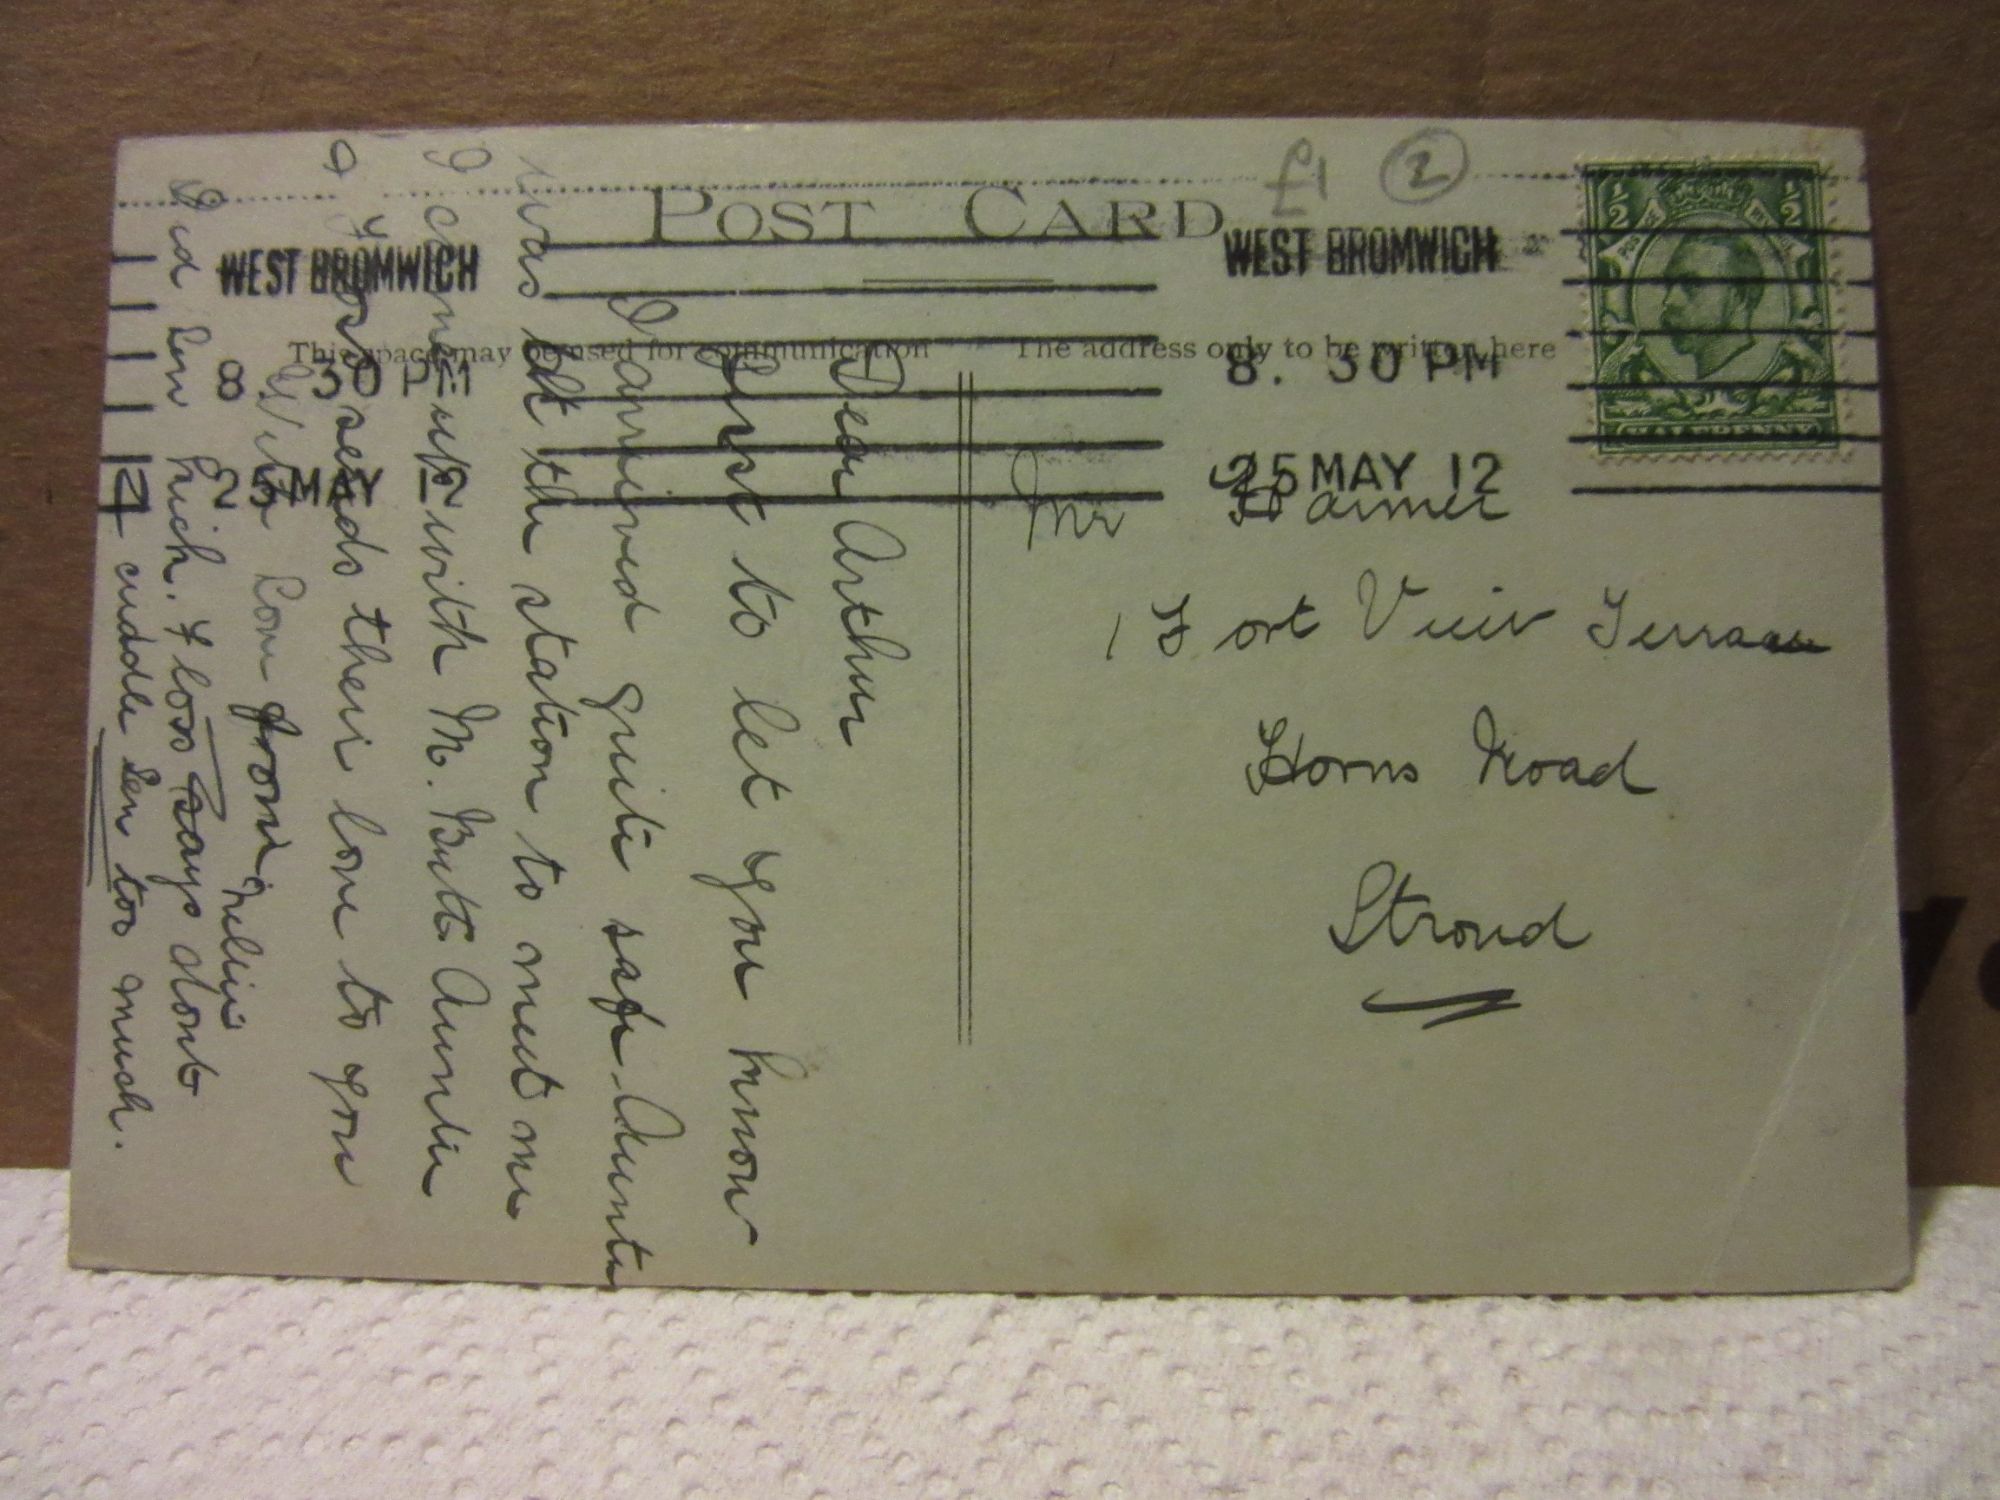 POST CARD
£1 2
WEST BROMWICH
WEST BROMWICH
This space may be used for communication
The address only to be written here
8 30 PM
8. 30 PM
25 MAY 12
25 MAY 12
1/2 1/2
HALFPENNY
Mr
1 Fort View Terrace
Horns Road
Stroud
Dear Arthur
Just to let you know
I arrived quite safe. Auntie
was at the station to meet me
I came up with M. Butt Auntie
& sends their love to you
With Love from Nellie
Kid Len kich. & loss says dont
cuddle Len too much.